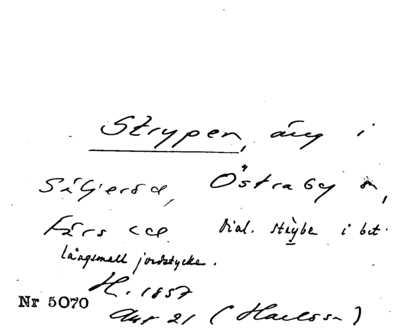 Strypen, äng i
Östraby sn,
Färs hd. Dial. strybe i bet.
långsmalt jordstycke.
H. 1857
Nr 5070
Akt 21 (Karlsson)